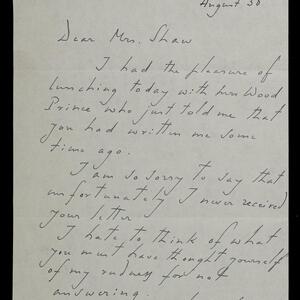 August 30
Dear Mrs. Shaw
I had the pleasure of
lunching today with Mrs Wood
Prince who just told me that
you had written me some
time ago.
I am so sorry to say that
unfortunately I never received
your letter
I hate to think of what
you must have thought yourself
of my rudness for not
answering.